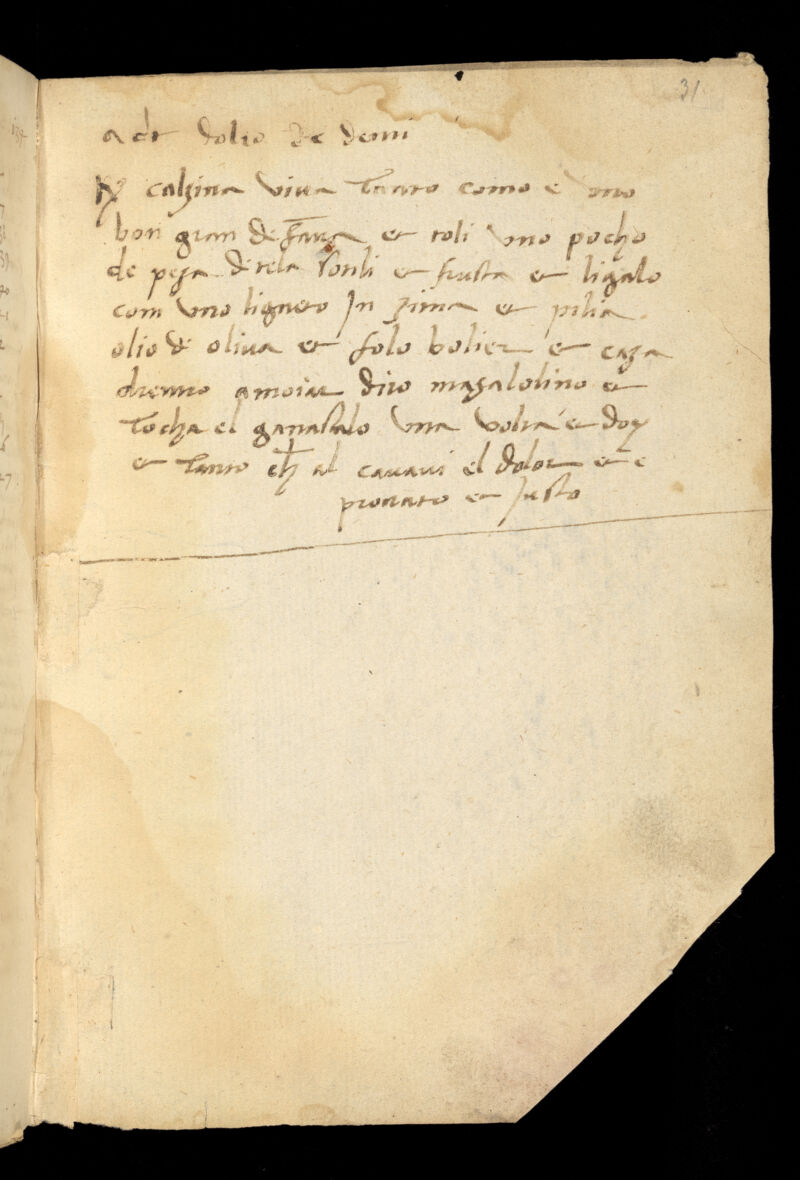 31
ad dolio de denti
Rx calzina viva tanto como e uno
bon gran de fava et toli uno pocho
de peza de tela sotili et frusta et ligalo
com uno ligneto In zima et pilia
olio de oliva et folo bolier et caza
drento amoiar dito mazalolino et
tocha el ganasalo una volta et doy
et tanto ch al cavavi el dolor et e
provato et Justo